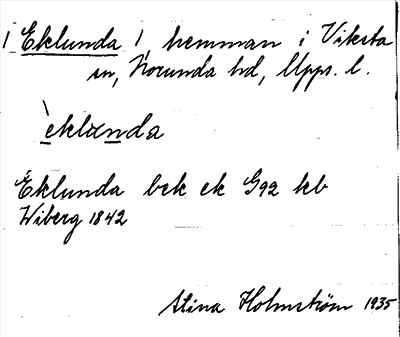 1 Eklunda 1, hemman i Viksta
sn, Norunda hd, Upps. l.
eklunda
Eklunda bek ek G92 kb
Wiberg 1842
Stina Holmström 1935